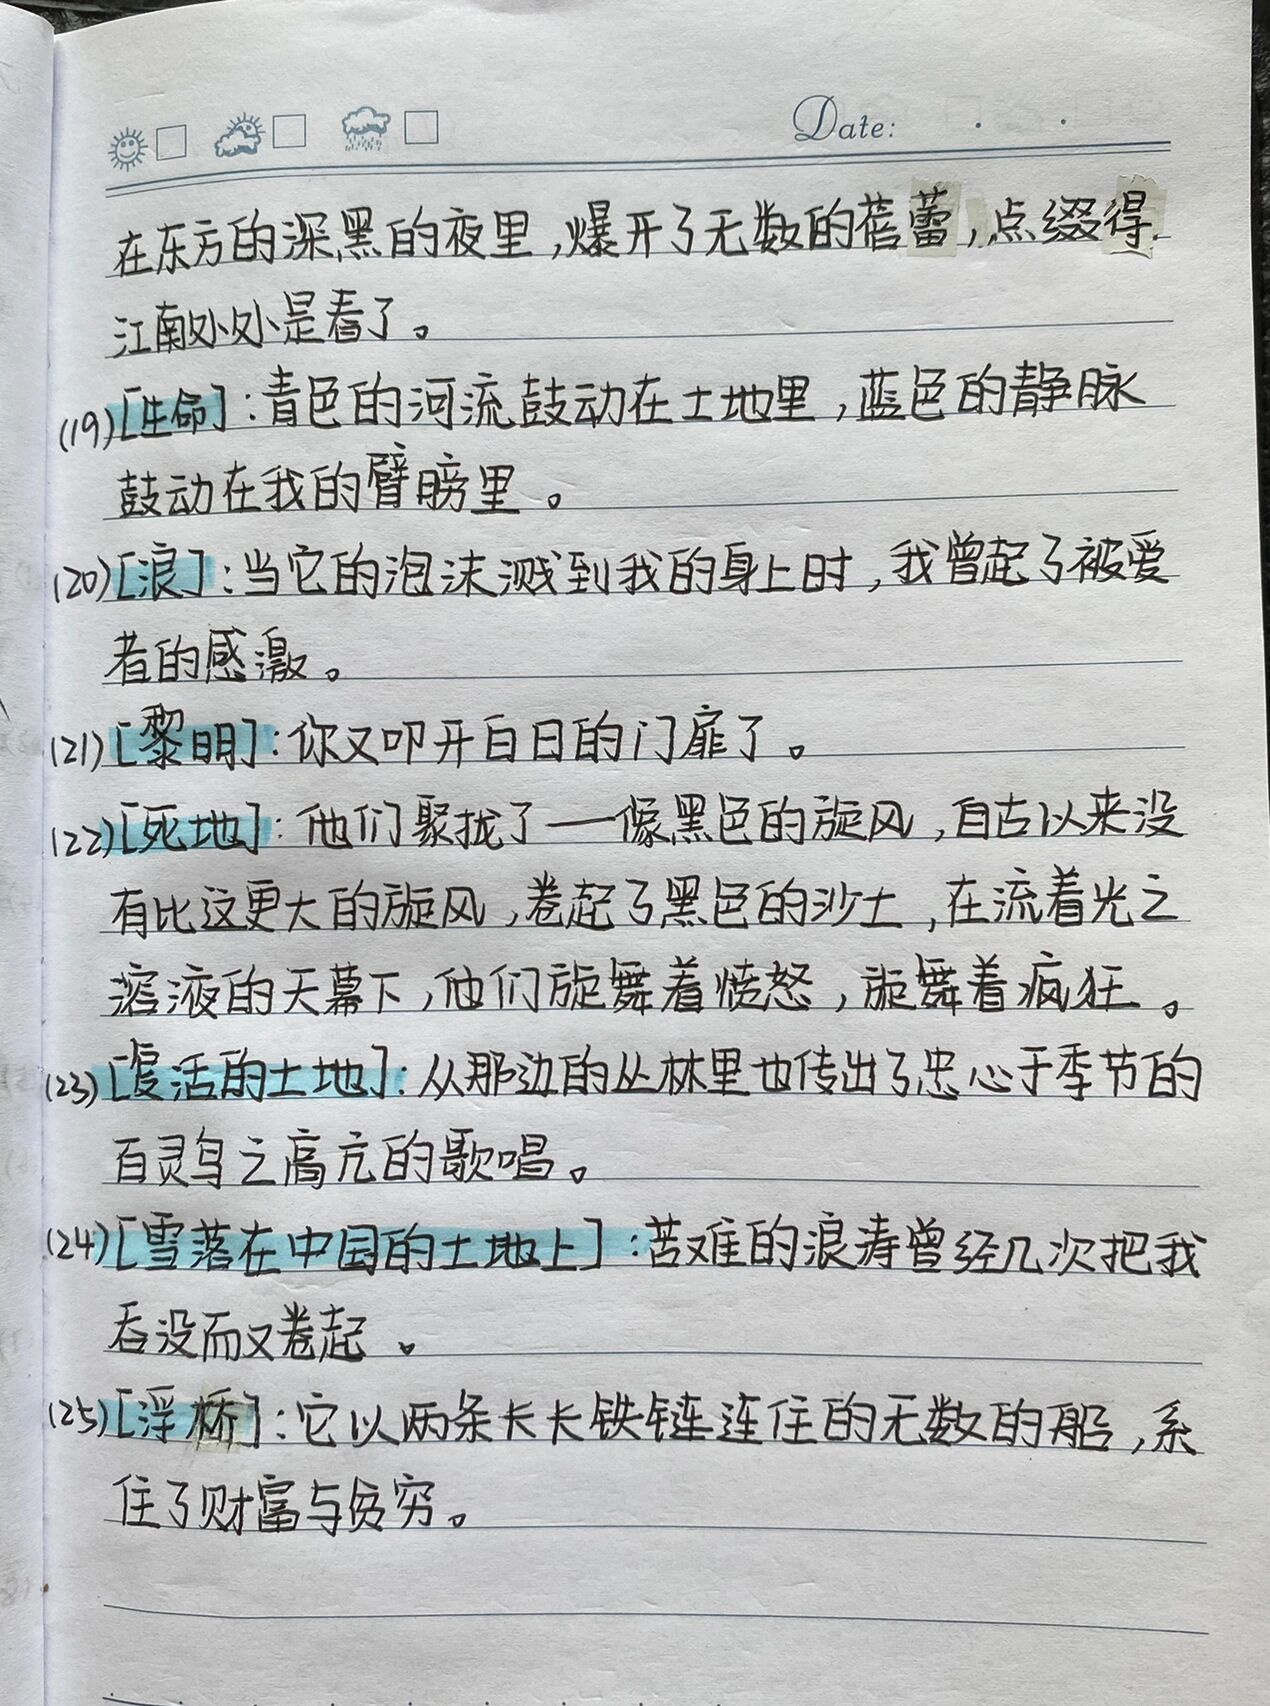 Date:
在东方的深黑的夜里,爆开了无数的蓓蕾,点缀得
江南处处是春了。
(19)[生命]:青色的河流鼓动在土地里,蓝色的静脉
鼓动在我的臂膀里。
(20)[浪]:当它的泡沫溅到我的身上时,我曾起了被爱
者的感激。
(21)[黎明]:你又叩开白日的门扉了。
(22)[死地]:他们聚拢了——像黑色的旋风,自古以来没
有比这更大的旋风,卷起了黑色的沙土,在流着光之
溶液的天幕下,他们旋舞着愤怒,旋舞着疯狂。
(23)[复活的土地]:从那边的丛林里也传出了忠心于季节的
百灵鸟之高亢的歌唱。
(24)[雪落在中国的土地上]:苦难的浪涛曾经几次把我
吞没而又卷起。
(25)[浮桥]:它以两条长长铁链连住的无数的船,系
住了财富与贫穷。